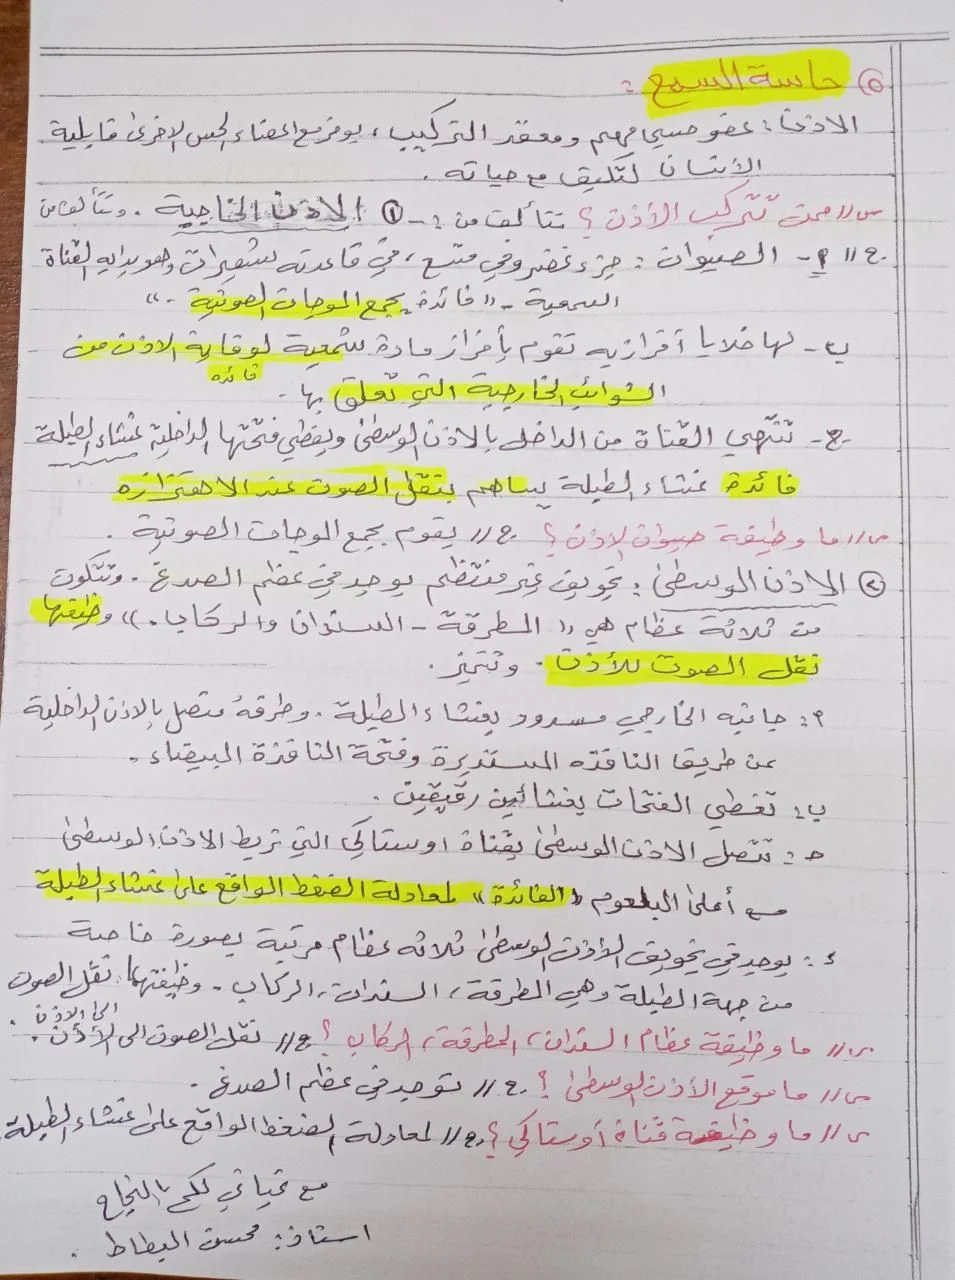 ٥ حاسة السمع :
الاذن : عضو حسي مهم ومعقد التركيب ، يوفر مع اعضاء الحس الاخرى قابلية
الأنسان لتكيف مع حياته .
س// مم تتركب الأذن ؟ تتألف من : - ① الاذن الخارجية . وتتألف من
ج// أ - الصيوان : جزء غضروفي متسع ، في قاعدته شعيرات وهو بداية القناة
السمعية - " فائدة يجمع الموجات الصوتية . "
ب - لها خلايا أفرازيه تقوم بأفراز مادة شمعية لوقاية الاذن من
فائده
الشوائب الخارجية التي تعلق بها .
ج - تنتهي القناة من الداخل بالاذن الوسطى ويغطي فتحتها الداخلية غشاء الطبلة
فائدة غشاء الطبلة يساهم بنقل الصوت عند الاهتزازه
س// ما وظيفة صيوان الاذن ؟ ج// يقوم بجمع الموجات الصوتية .
② الاذن الوسطى : تجويف غير منتظم يوجد في عظم الصدغ . وتتكون
من ثلاثة عظام هي " المطرقة - السندان والركاب . " وظيفتها
نقل الصوت للأذن . وتتميز .
أ : جانبه الخارجي مسدود بغشاء الطبلة . وطرفهُ متصل بالاذن الداخلية
عن طريق النافذه المستديرة وفتحة النافذة البيضاء .
ب : تغطي الفتحات بغشائين رقيقين .
ح : تتصل الاذن الوسطى بقناة اوستاكي التي تربط الاذن الوسطى
مع أعلى البلعوم " الفائدة " لمعادلة الضغط الواقع على غشاء الطبلة
ء : يوجد في تجويف الأذن الوسطى ثلاثه عظام مرتبة بصورة خاصة
من جهة الطبلة وهي المطرقة ، السندان ، الركاب . وظيفتها نقل الصوت
الى الاذن .
س// ما وظيفة عظام السندان ، المطرقة ، الركاب ؟ ج// نقل الصوت الى الأذن .
س// ما موقع الأذن الوسطى ؟ ج// توجد في عظم الصدغ .
س// ما وظيفة قناة أوستاكي ؟ ج// لمعادلة الضغط الواقع على غشاء الطبلة .
مع تحياتي لكم بالنجاح
استاذ : محسن البطاط .